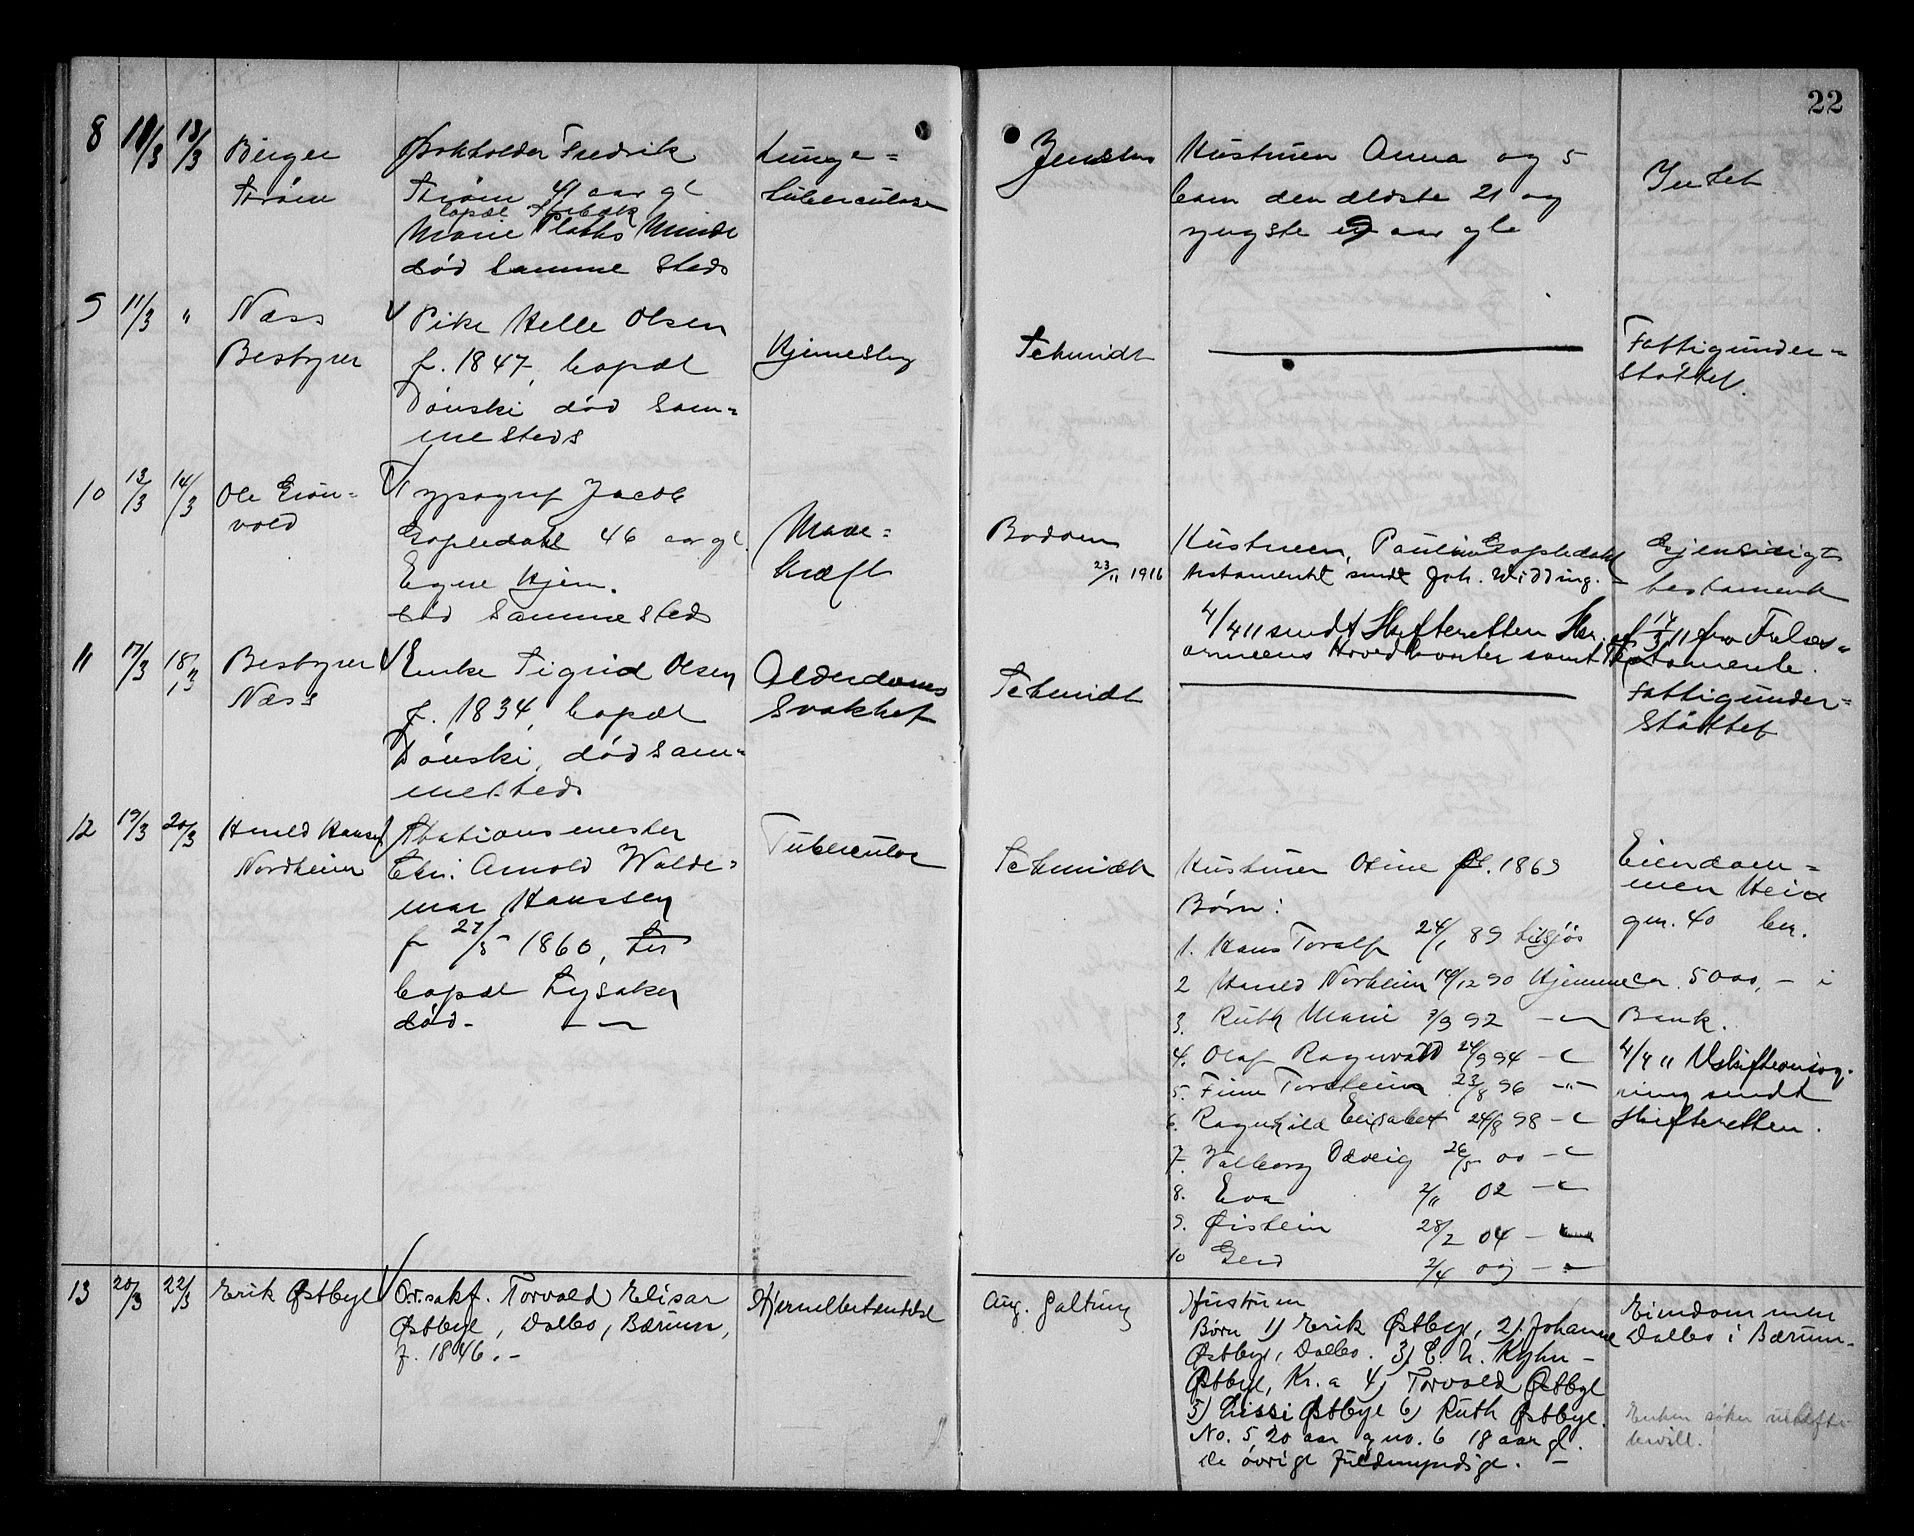 22
8 11/3 13/3 Birger
Strøm
Bokholder Fredrik
Strøm 41 aar gl
bopæl
Marie Plathes Minde
død samme steds
Lunge=
tuberculose
Hustruen Anna og 5
barn den ældste 21 og
yngste 9 aar gle
Intet
9 11/3 " Næss
Bestyrer
Pike Helle Olsen
f. 1847, bopæl
Dønski død sam=
mesteds
Hjerneslag
Schmidt
Fattigunder=
støttet.
10 13/3 14/3 Ole Grøn=
vold
Typograf Jacob
Gopledahl 46 aar gl.
Egne Hjem.
død sammesteds
Mave=
kræft
Bodom
23/11 1916
Hustruen, Pauline Gopledahl
testamentet sendt Joh. Widding.
Gjensidigt
testamente
4/4 11 sendt Skifteretten Skr. af 17/3 11 fra Frelses=
armeens Hovedkvarter samt Testamente.
11 17/3 18/3 Bestyrer
Næss
Enke Sigrid Olsen
f. 1834, bopæl
Dønski, død sam=
mesteds
Alderdoms
Svakhet
Schmidt
Fattigunder=
støttet
12 19/3 20/3 Harald Hansen
Nordheim
Stationsmester
Chr. Arnold Walde=
mar Hanssen
f 27/5 1860,
bopæl Lysaker
død - — —
Tuberculos
Schmidt
Hustruen Osine f. 1863
Børn:
1. Hans Toralf 24/1 89 tilsjøs
2 Harald Norheim 14/12 90 Hjemme
3. Ruth Marie 7/9 92 —
4. Olaf Ragnvald 24/9 94 —
5. Finn Torstein 23/8 96 -"-
6. Ragnhild Elisabet 24/8 98 —
7. Valborg Solveig 26/5 00 —
8. Eva 2/11 02 —
9. Øistein 28/2 04 —
10 Gerd 2/4 09 —
Eiendom=
men Heia
gnr. 40 bn.
ca. 5000,- i
Bank.
4/4 11 Uskifteansøg-
ning sendt
Skifteretten.
13 20/3 22/3 Erik Østbye
O.r.sakf. Torvald Elisar
Østbye, Dalbo, Bærum,
f. 1846.-
Hjernebetændelse
Aug. Galtung
Hustruen
Børn 1) Erik Østbye, 2) Johanne
Østbye, Dalbo. 3) C. N. Kyhn-
Østbye, Kr.a 4) Torvald Østbye
5) Lissi Østbye 6) Ruth Østbye.
No. 5 20 aar og no. 6 18 aar gl.
De øvrige fuldmyndige. -
Eiendommen
Dalbo i Bærum.
Enken søker uskifte-
bevill.